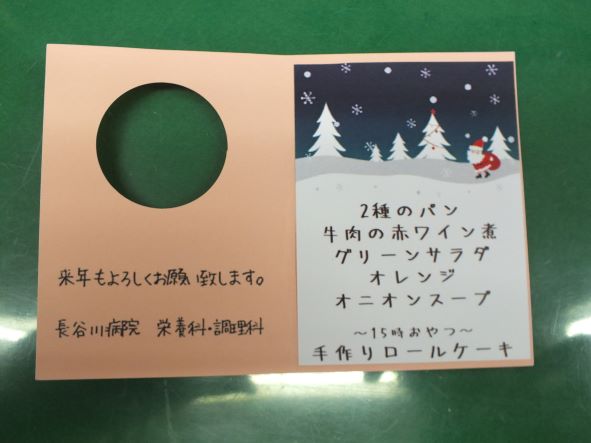 来年もよろしくお願い致します。
長谷川病院 栄養科・調理科
2種のパン
牛肉の赤ワイン煮
グリーンサラダ
オレンジ
オニオンスープ
～15時おやつ～
手作りロールケーキ